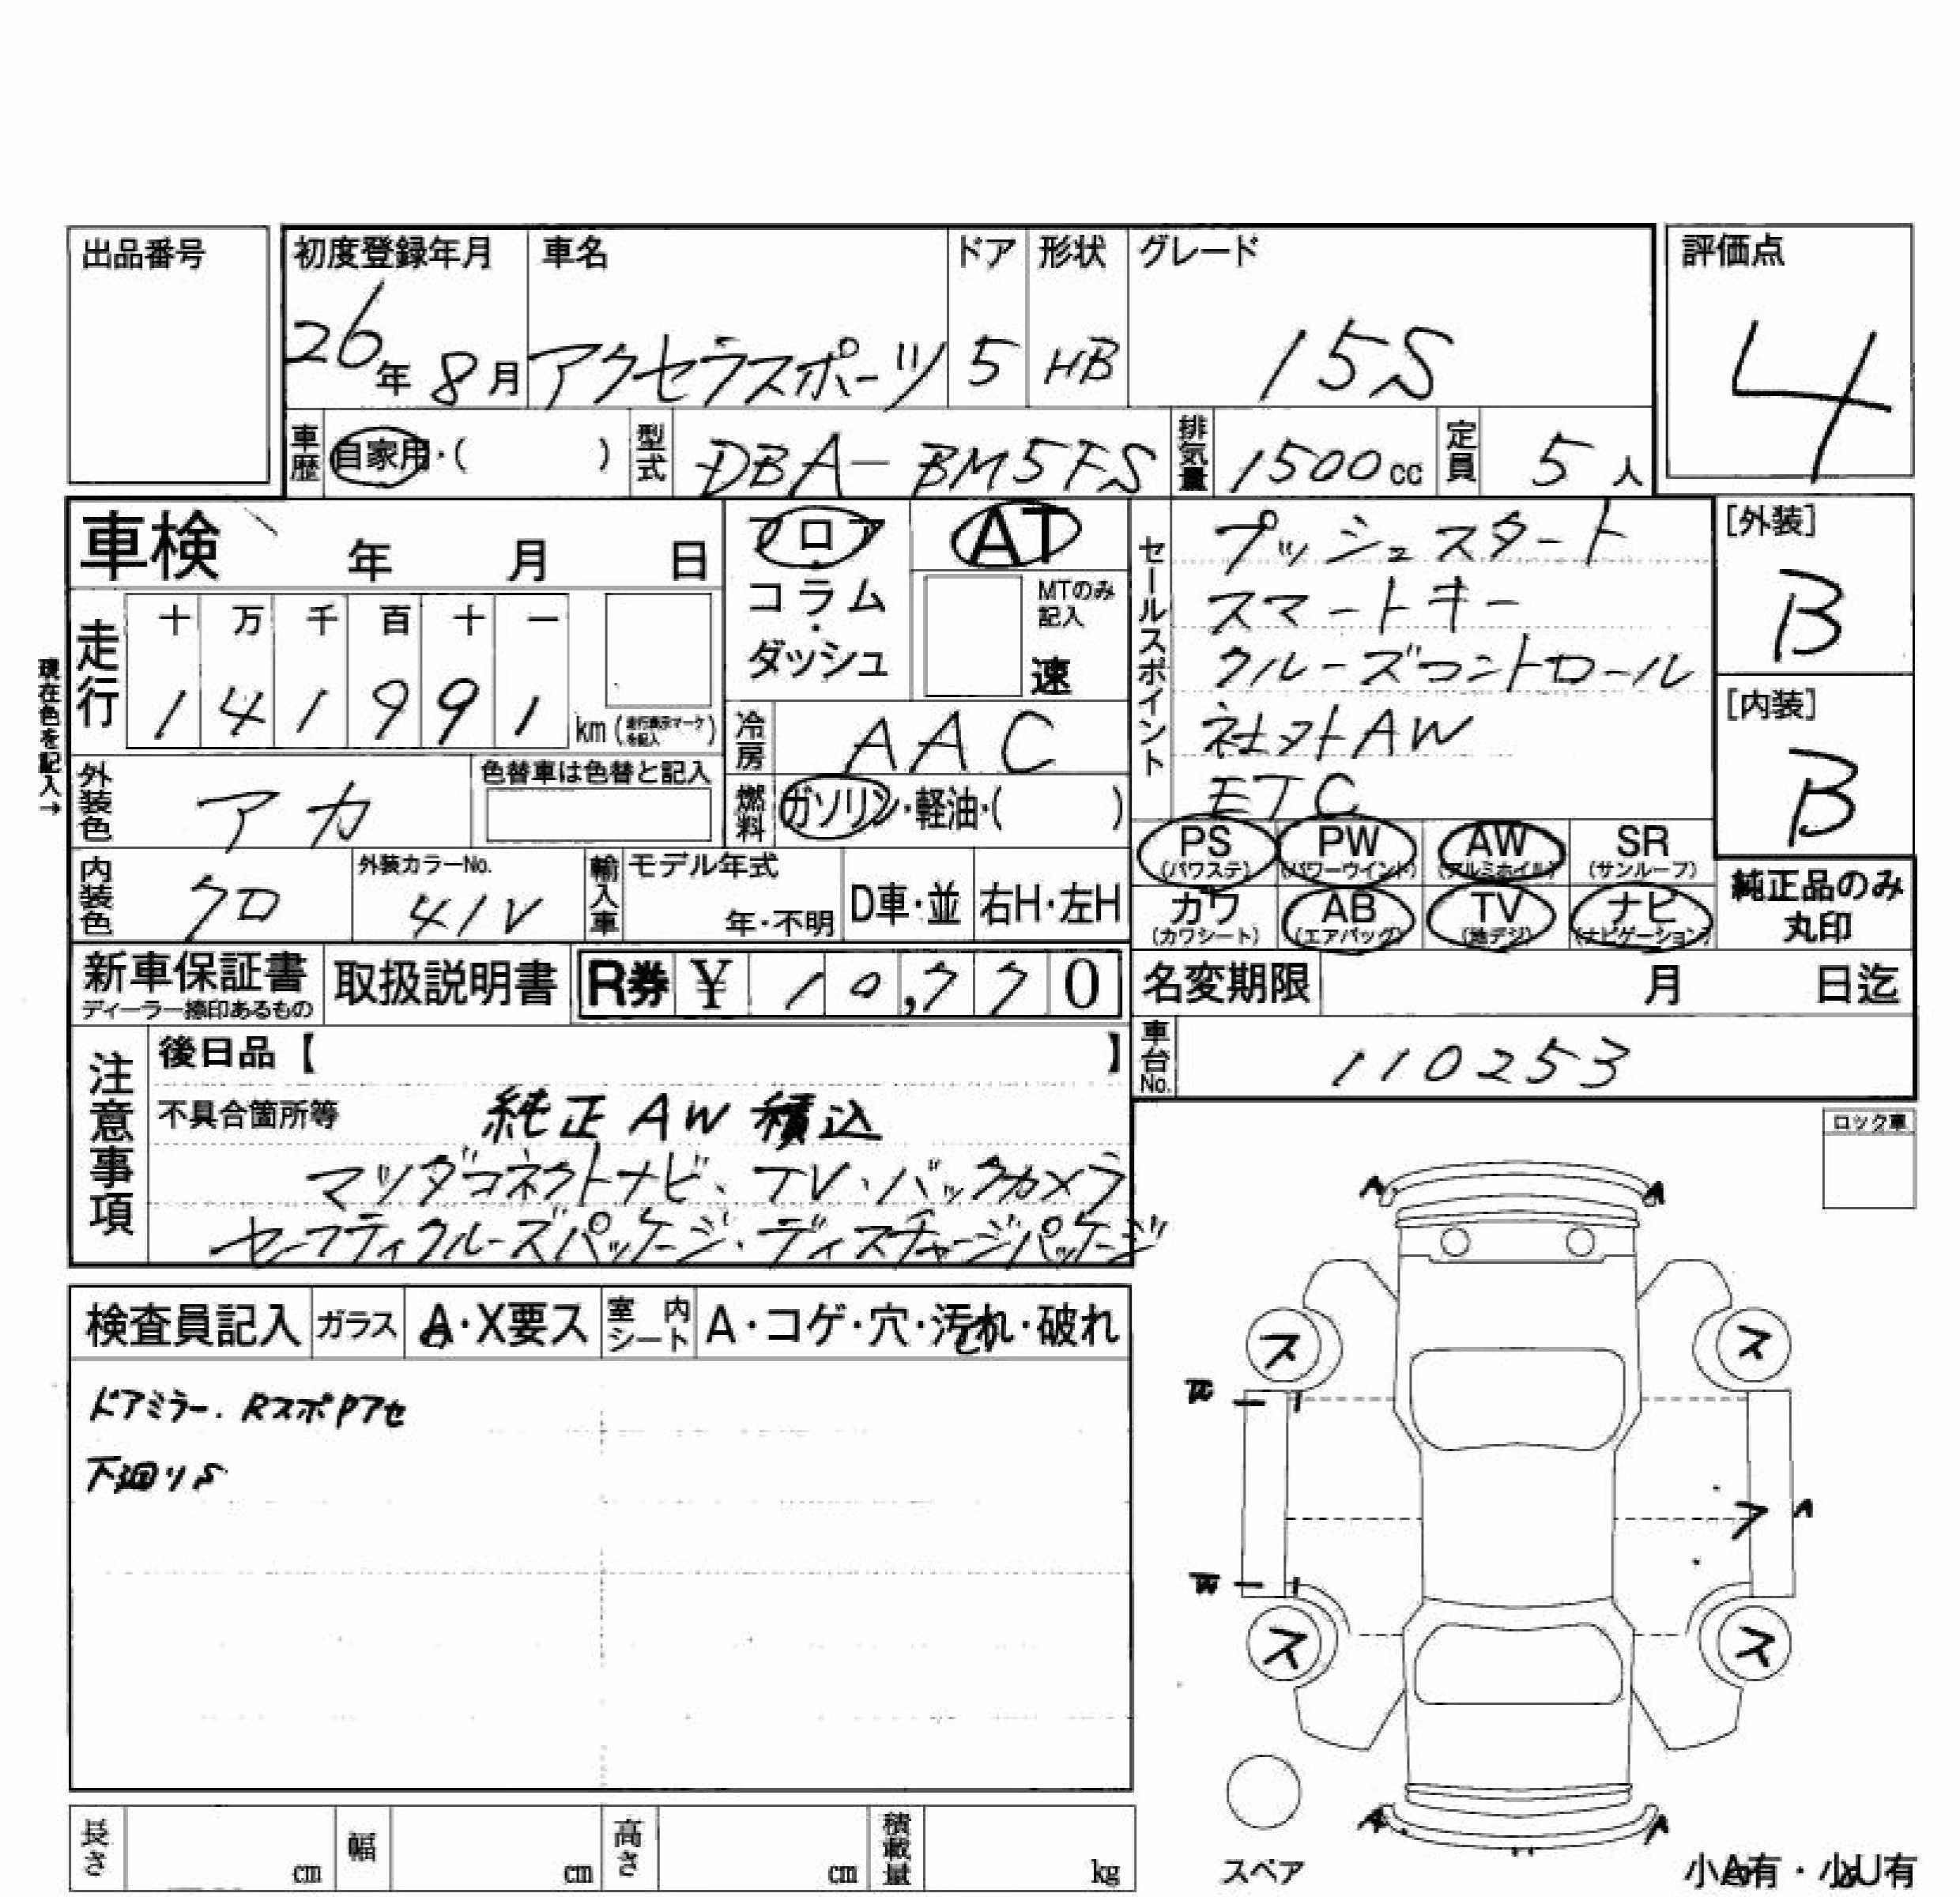 出品番号
初度登録年月 車名 ドア 形状 グレード 評価点
26年 8月 アクセラスポーツ 5 HB 15S 4
車歴 自家用・( ) 型式 DBA-BM5FS 排気量 1500cc 定員 5人
車検 年 月 日
フロア・コラム・ダッシュ
AT
MTのみ記入
速
セールスポイント
プッシュスタート
スマートキー
クルーズコントロール
社外AW
ETC
[外装]
B
[内装]
B
現在色を記入→
走行 十 万 千 百 十 一
1 4 1 9 9 1 km (走行表示マークを記入)
冷房 AAC
外装色 アカ 色替車は色替と記入
燃料 ガソリン・軽油・( )
内装色 クロ 外装カラーNo. 41V
輸入車 モデル年式 年・不明 D車・並 右H・左H
PS(パワステ) PW(パワーウインド) AW(アルミホイル) SR(サンルーフ)
カワ(カワシート) AB(エアバッグ) TV(地デジ) ナビ(ナビゲーション)
純正品のみ丸印
新車保証書 ディーラー捺印あるもの 取扱説明書 R券 ¥ 10,770
名変期限 月 日迄
車台No. 110253
注意事項
後日品【 】
不具合箇所等 純正AW積込
マツダコネクトナビ、TV、バックカメラ
セーフティクルーズパッケージ・ディスチャージパッケージ
ロック車
検査員記入 ガラス A・X要ス 室内シート A・コゲ・穴・汚れ・破れ
ドアミラー. RスポPアセ
下廻りS
A A
ス ス
ス ス
フ A
A A
スペア
長さ cm 幅 cm 高さ cm 積載量 kg
小A有・小U有